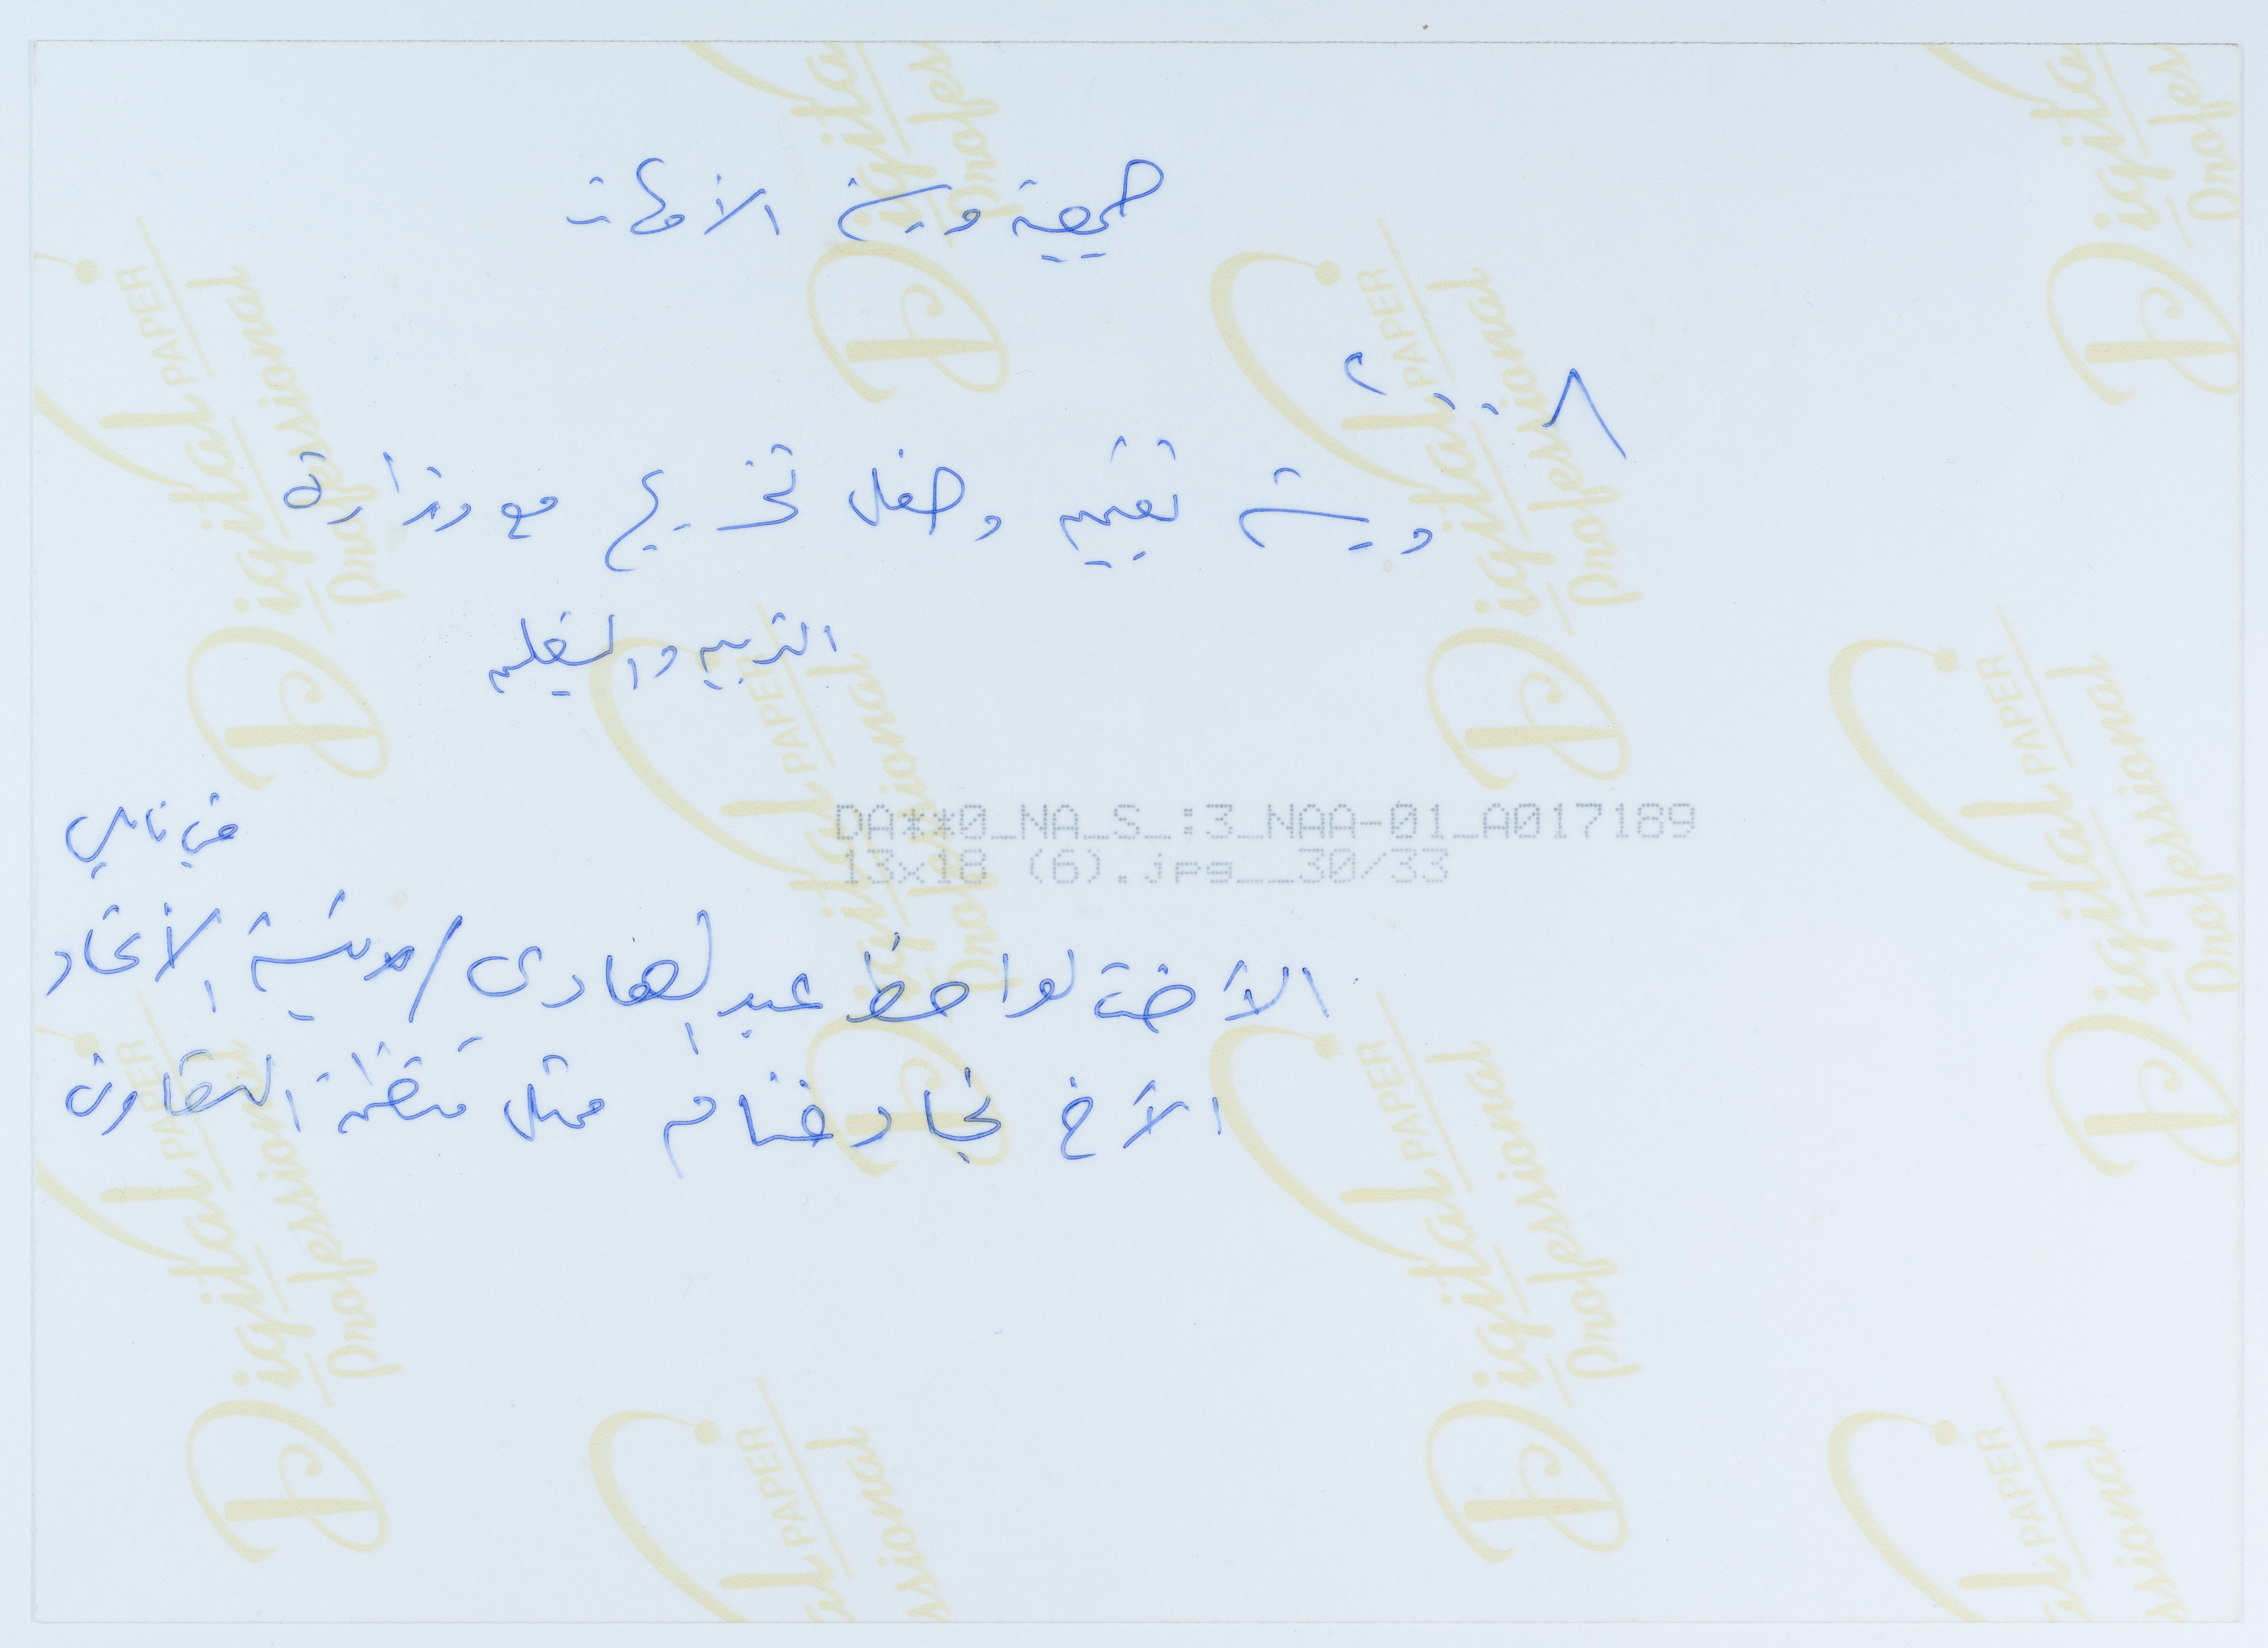 جمعية مدرسة الأمهات
٢٠٠٨
ورشة تقييم وحفل تخريج مع وزارة
التربيه والتعليم
في نابلس
الأخت لواحظ عبد الهادى / رئيسة الأتحاد
الأخ نجاد غنام ممثل منظمة التعاون
DA**0_NA_S_:3_NAA-01_A017189
13x18 (6).jpg__30/33
Digital PAPER
Professional